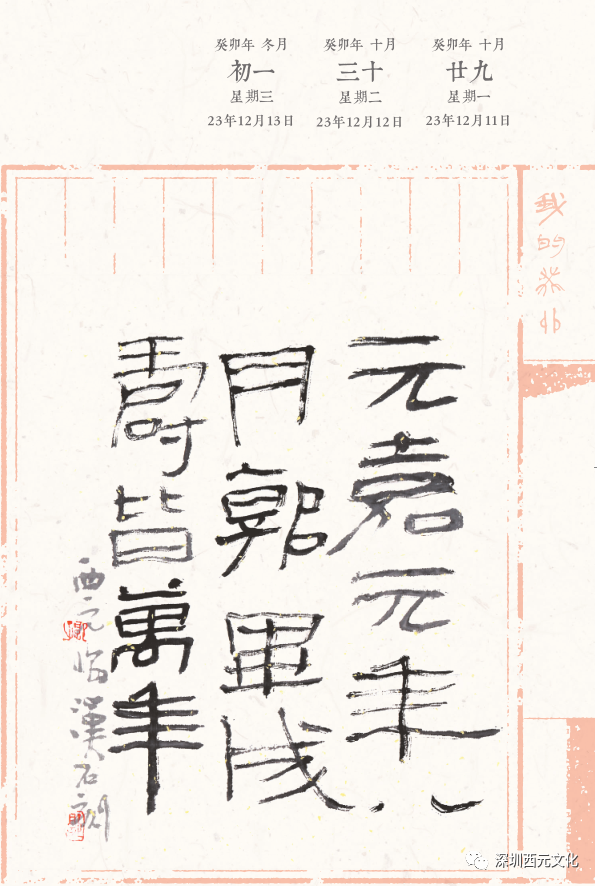 癸卯年 冬月
初一
星期三
23年12月13日
癸卯年 十月
三十
星期二
23年12月12日
癸卯年 十月
廿九
星期一
23年12月11日
我的
元嘉元年八
月郭畢成
壽皆萬年
西元臨漢石刻
深圳西元文化